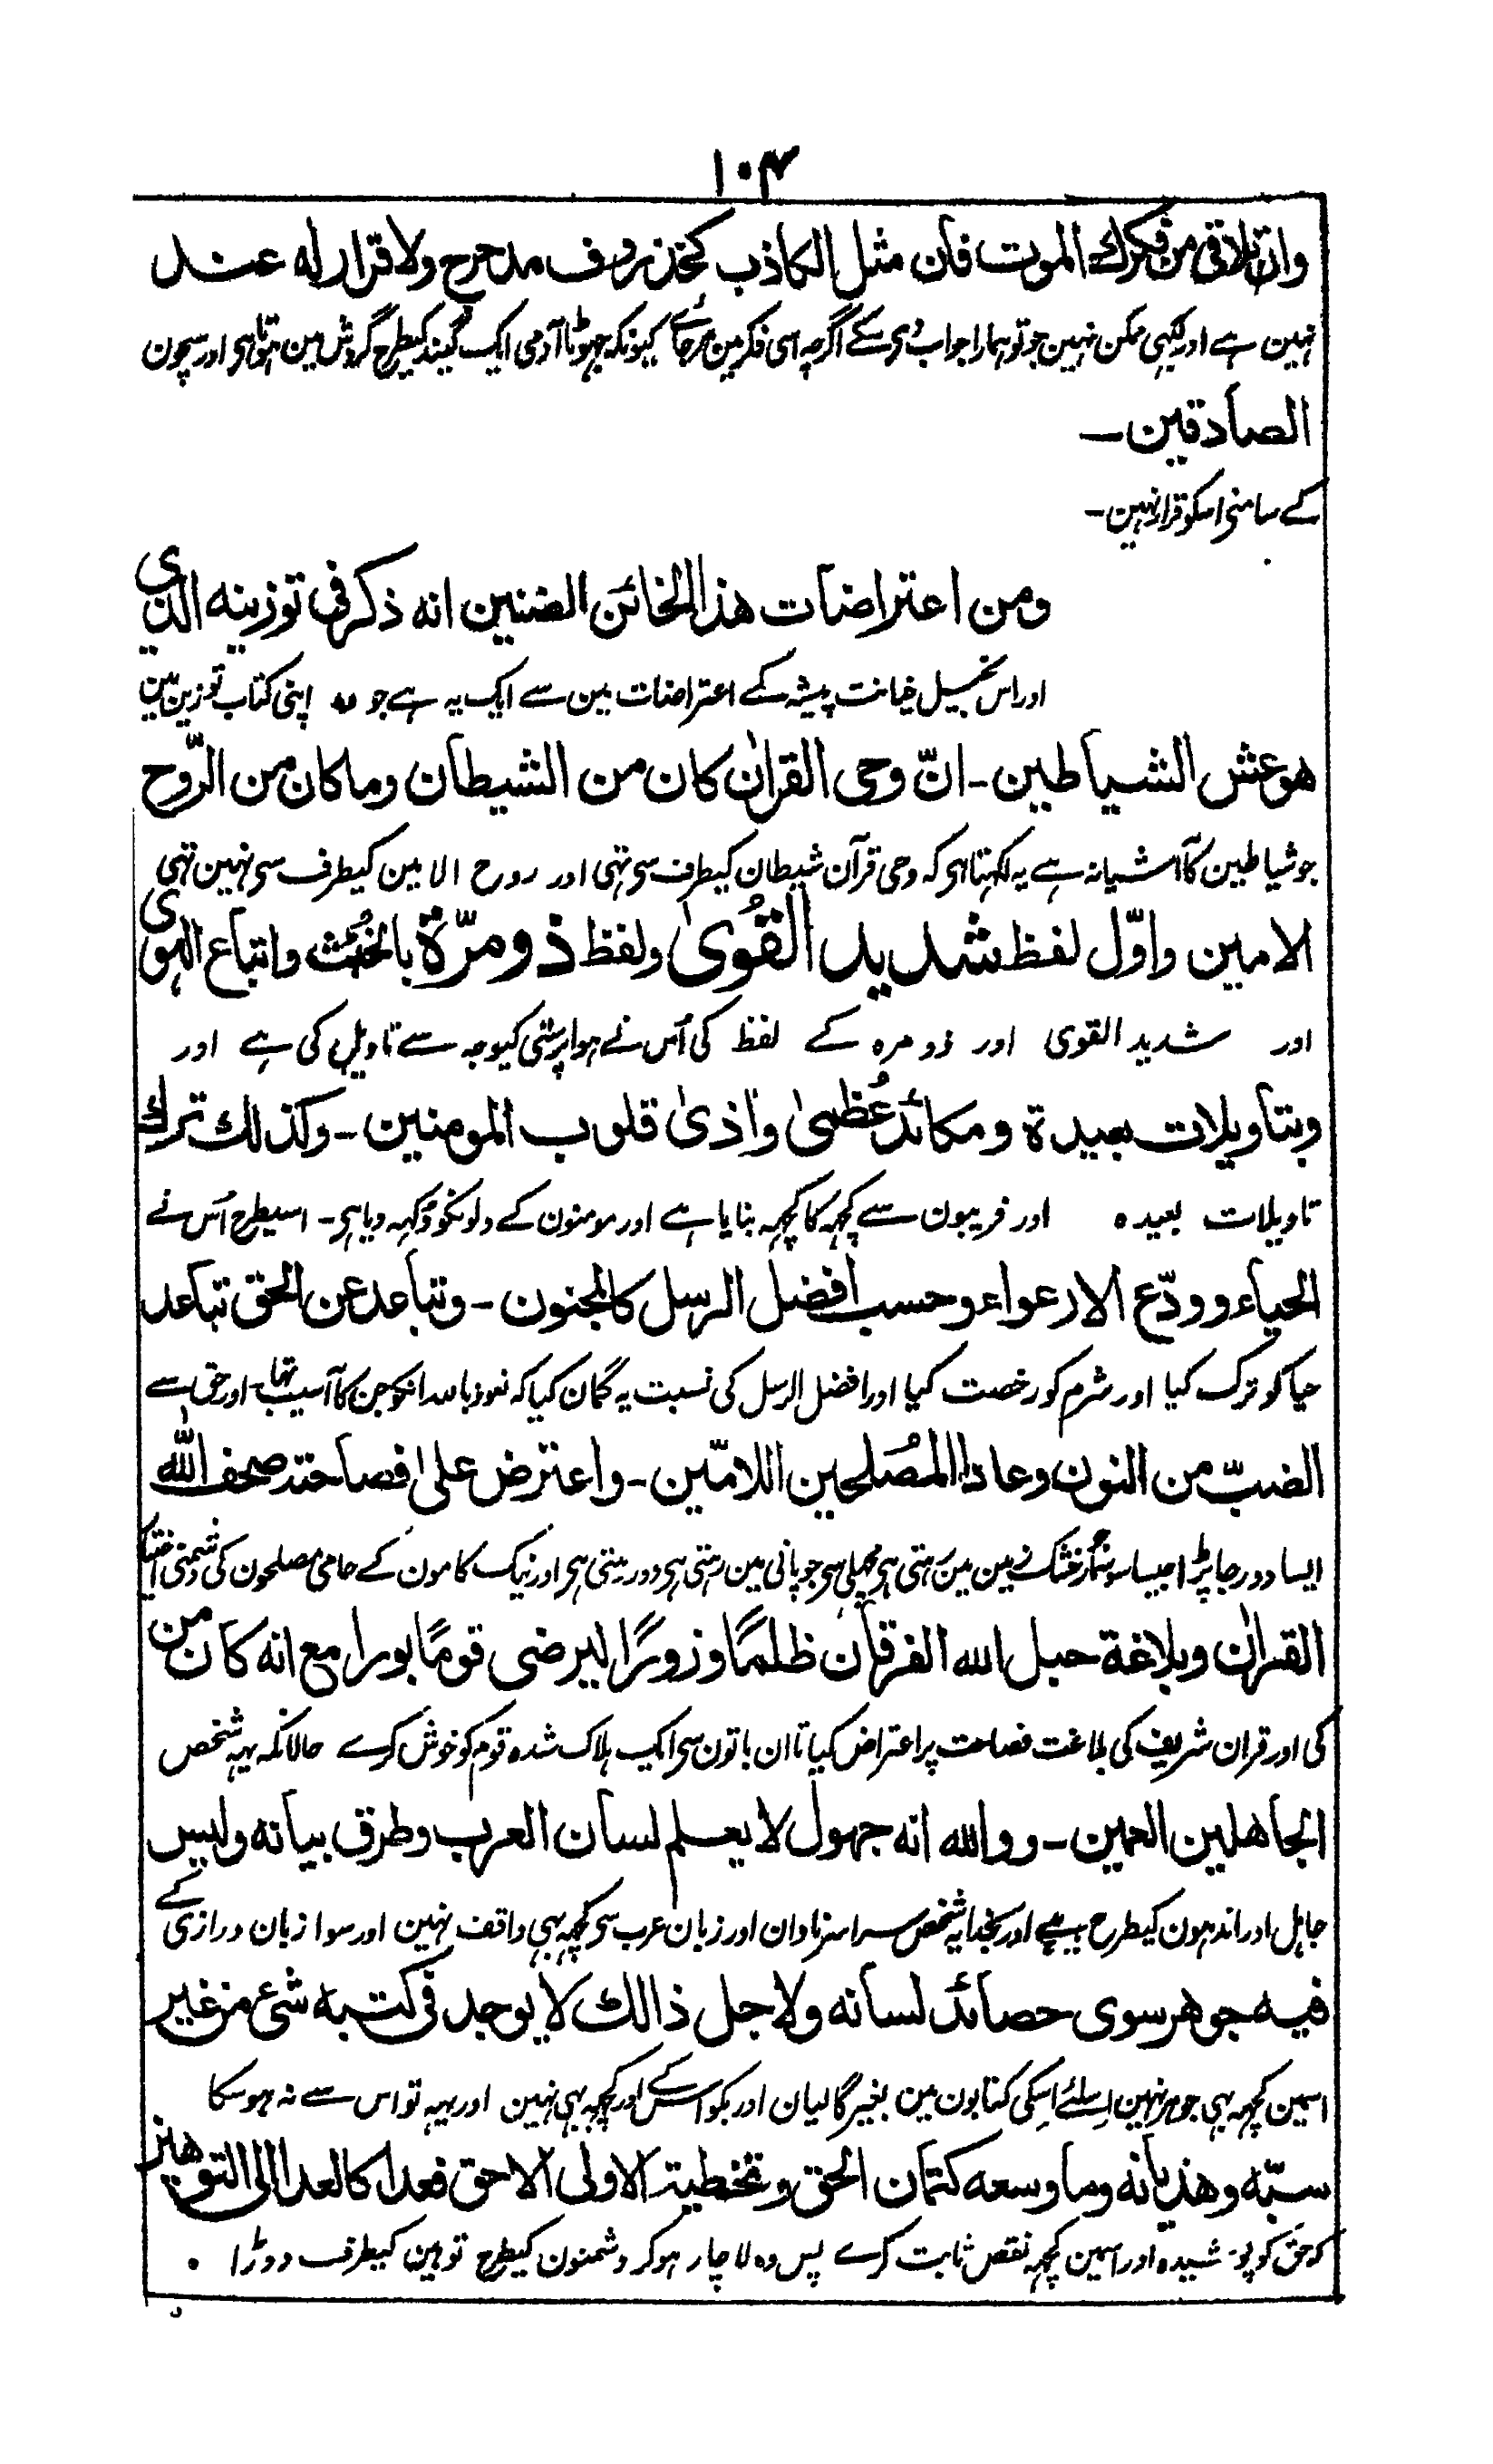 ۱۰۴
وان تلاقی من فکرك الموت فان مثل الکاذب کخذروف مدحرج ولا قرار له عند
نہین ہے اور کبہی ممکن نہین جو تو ہمارا جواب دی سکے اگرچہ اسی فکر مین مر جائے کیونکہ جہوٹا آدمی ایک گیند کیطرح گردش مین ہوتا ہی اور سچون
الصادقین ــ
کے سامنی اسکو قرار نہین ـ
ومن اعتراضات هذا الخائن الضنین انه ذکر فی توزینه الذی
اور اس بخیل خیانت پیشہ کے اعتراضات مین سے ایک یہ ہے جو وہ اپنی کتاب توزین مین
هو عش الشیاطین ـ انّ وحی القراٰن کان من الشیطان وما کان من الرّوح
جو شیاطین کا آشیانہ ہے یہ لکہتا ہی کہ وحی قرآن شیطان کیطرف سی تہی اور روح الامین کیطرف سی نہین تہی
الامین واوّل لفظ شدید القُویٰ ولفظ ذومرّة بالخُبث واتباع الہوی
اور شدید القوی اور ذو مرہ کے لفظ کی اُس نے ہوا پرستی کیوجہ سے تاویل کی ہے اور
وبتاویلات بعیدة ومکائد عُظمیٰ واٰذیٰ قلوب المومنین ـ وکذلك ترك
تاویلات بعیدہ اور فریبون سے کچہہ کا کچہہ بنایا ہے اور مومنون کے دلونکو دُکہہ دیا ہی ـ اسیطرح اُس نے
الحیاء وودّع الارعواء وحسب افضل الرسل کالمجنون ـ وتباعد عن الحق تباعد
حیا کو ترک کیا اور شرم کو رخصت کیا اور افضل الرسل کی نسبت یہ گمان کیا کہ نعوذ باللہ انکو جن کا آسیب تہا ـ اور حق سے
الضبّ من النون وعادا المُصلحین اللامّین ـ واعترض علیٰ فصاحة صحف اللّٰه
ایسا دور جا پڑا جیسا سوسمار خشک زمین مین رہتی ہی مچھلی سی جو پانی مین رہتی ہی دور رہتی ہی اور نیک کامون کے حامی مصلحون کی دشمنی اختیا
القراٰن وبلاغة حبل الله الفرقان ظلمًا وزورًا لیرضی قومًا بورا مع انه کان من
کی اور قران شریف کی بلاغت فصاحت پر اعتراض کیا تا ان باتون سی ایک ہلاک شدہ قوم کو خوش کرے حالانکہ یہہ شخص
الجاهلین العمین ـ و والله انه جهول لا یعلم لسان العرب وطرق بیانه ولیس
جاہل اور اندہون کیطرح ہے اور بخدا یہ شخص سراسر نادان اور زبان عرب سی کچہہ بہی واقف نہین اور سوا زبان درازی کے
فیه جوهر سوی حصائد لسانه ولاجل ذالك لا یوجد فی کتبه شیٔ من غیر
اسمین کچہہ بہی جوہر نہین اِسلئے اسکی کتابون مین بغیر گالیان اور بکواس کے اور کچہہ بہی نہین اور یہہ تو اس سے نہ ہوسکا
سبّه وهذیانه وما وسعه کتمان الحق وتخطیة الاولی الاحق فعدا کالعدا الی التوهین
کہ حق کو پوشیدہ اور اسمین کچہہ نقص ثابت کرے پس وہ لاچار ہوکر دشمنون کیطرح توہین کیطرف دوڑا ۰